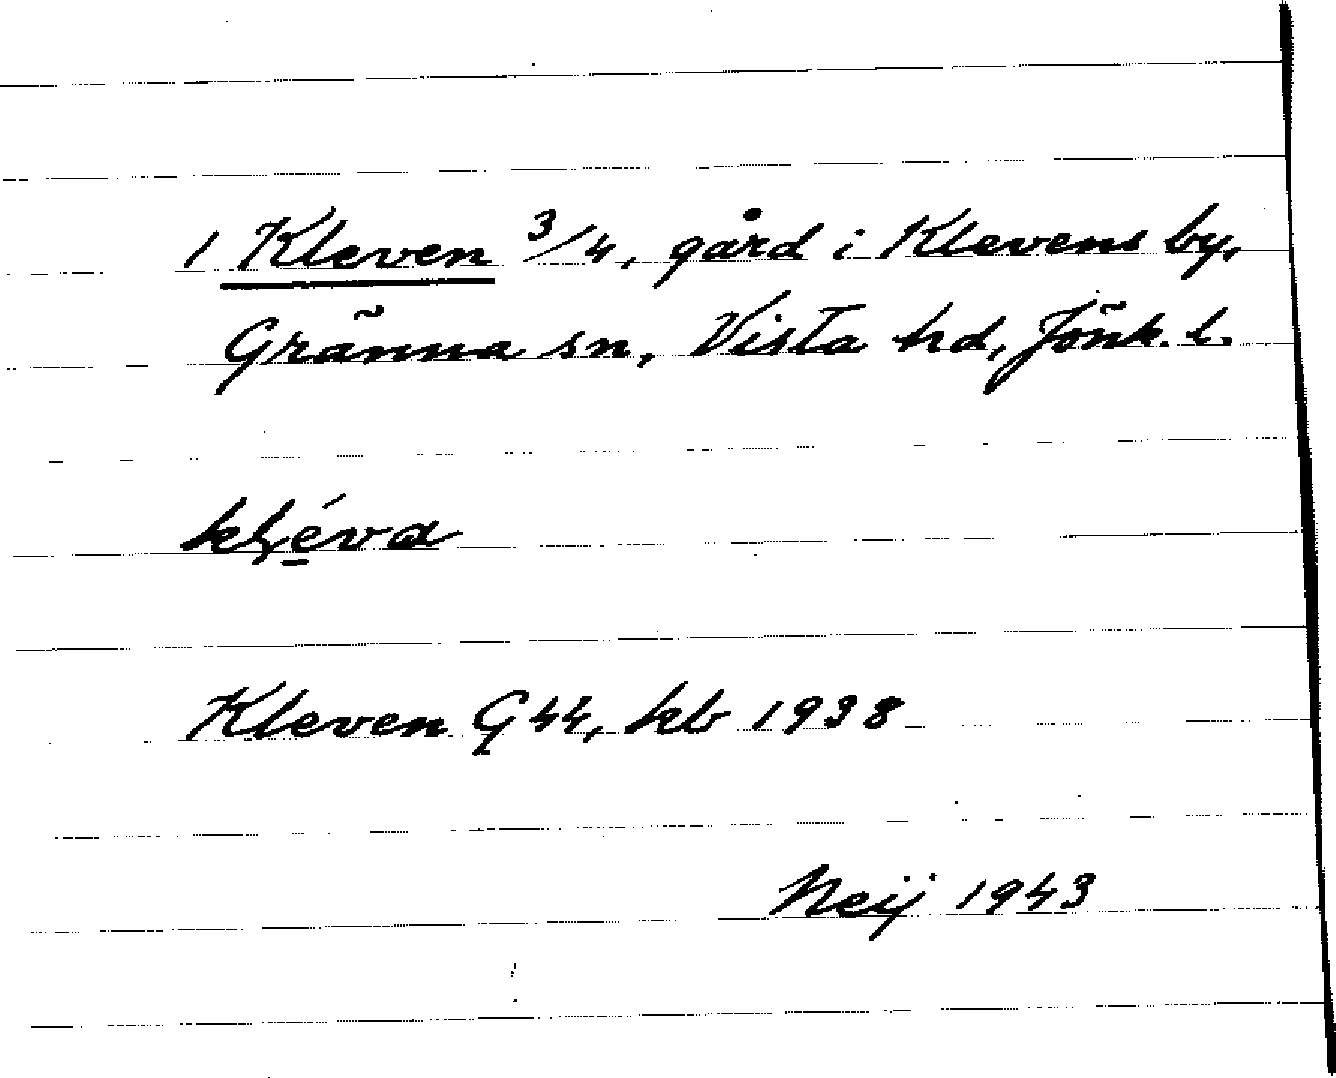 1 Kleven 3/4, gård i Klevens by,
Gränna sn, Vista hd, Jönk. l.
kļé̱va
Kleven G44, kb 1938
Neij 1943